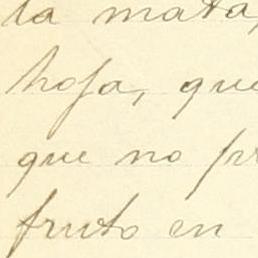 la mata,
hoja, que
que no pr
fruto en